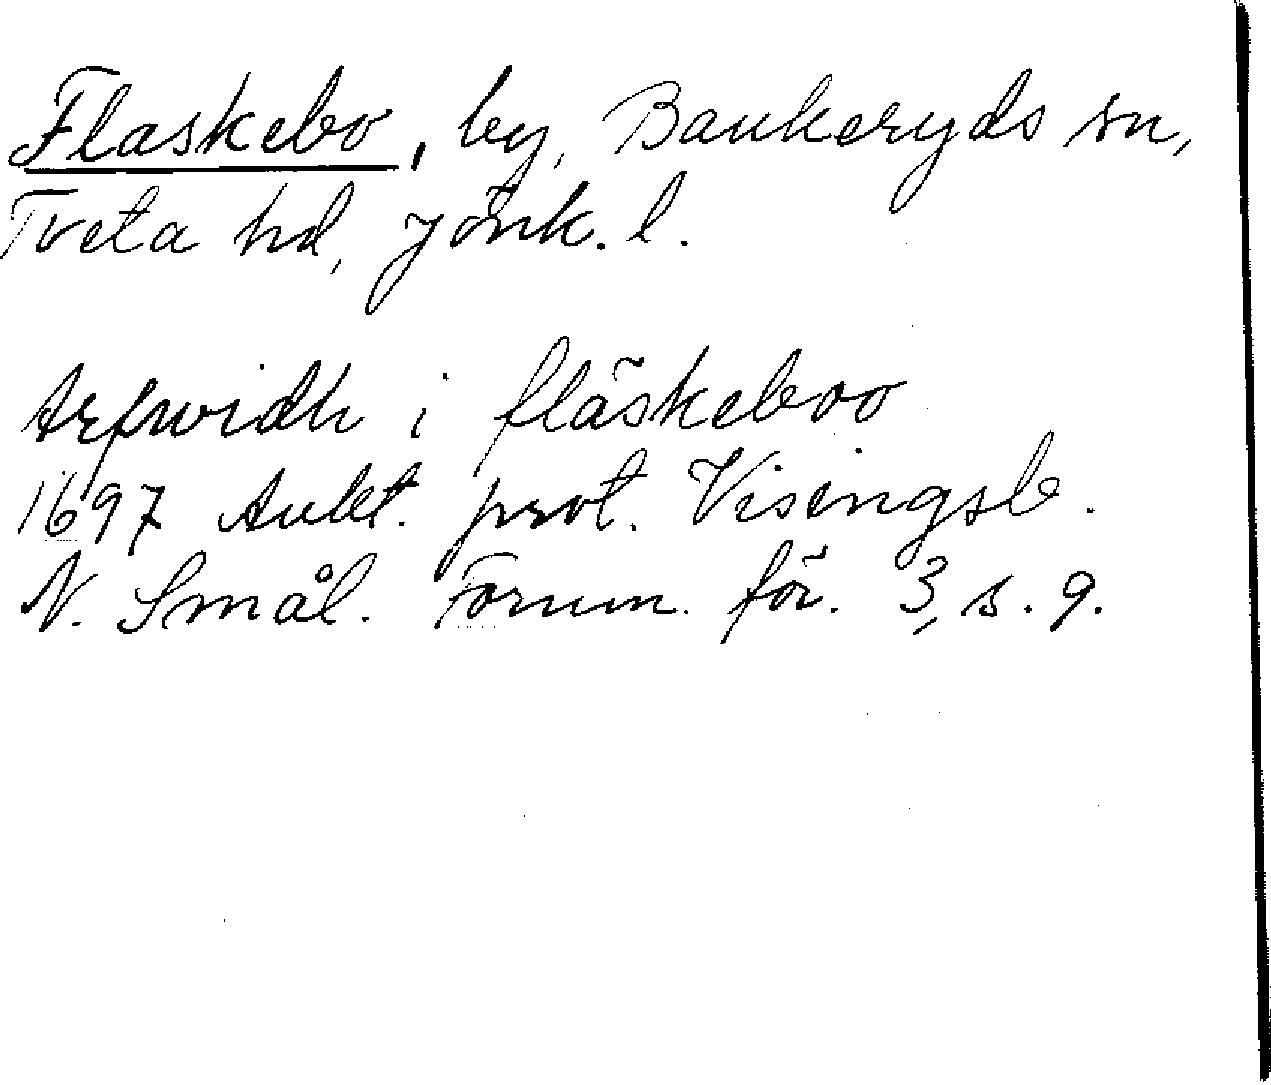 Flaskebo, by, Bankeryds sn,
Tveta hd, Jönk. l.
Arfwidh i fläskeboo
1697 Aukt. prot. Visingsb.
N. Smål. Fornm. för. 3, s. 9.